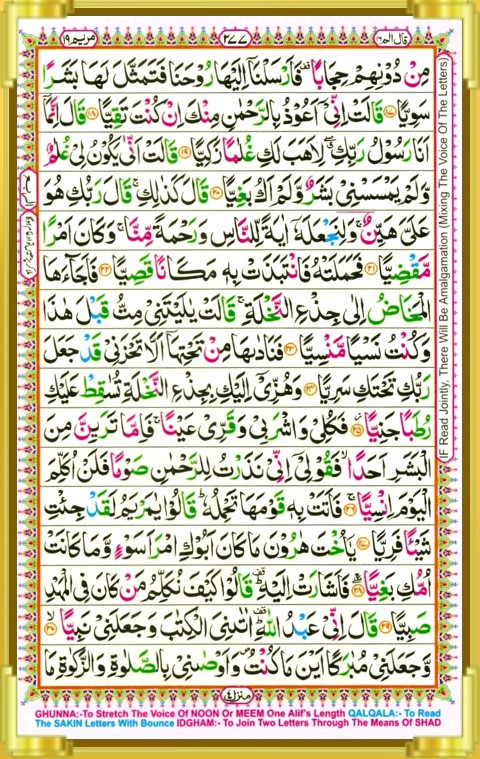 قال الم ١٦
٢٧٧
مريم ١٩
مِنْ دُوْنِهِمْ حِجَابًا ۪۫ فَاَرْسَلْنَاۤ اِلَیْهَا رُوْحَنَا فَتَمَثَّلَ لَهَا بَشَرًا
سَوِیًّا ﴿۱۷﴾ قَالَتْ اِنِّیْۤ اَعُوْذُ بِالرَّحْمٰنِ مِنْكَ اِنْ كُنْتَ تَقِیًّا ﴿۱۸﴾ قَالَ اِنَّمَاۤ
اَنَا رَسُوْلُ رَبِّكِ ۖۗ لِاَهَبَ لَكِ غُلٰمًا زَكِیًّا ﴿۱۹﴾ قَالَتْ اَنّٰی یَكُوْنُ لِیْ غُلٰمٌ
وَّلَمْ یَمْسَسْنِیْ بَشَرٌ وَّلَمْ اَكُ بَغِیًّا ﴿۲۰﴾ قَالَ كَذٰلِكِ ۚ قَالَ رَبُّكِ هُوَ
عَلَیَّ هَیِّنٌ ۚ وَلِنَجْعَلَهٗۤ اٰیَةً لِّلنَّاسِ وَرَحْمَةً مِّنَّا ۚ وَكَانَ اَمْرًا
مَّقْضِیًّا ﴿۲۱﴾ فَحَمَلَتْهُ فَانْتَبَذَتْ بِهٖ مَكَانًا قَصِیًّا ﴿۲۲﴾ فَاَجَآءَهَا
الْمَخَاضُ اِلٰی جِذْعِ النَّخْلَةِ ۚ قَالَتْ یٰلَیْتَنِیْ مِتُّ قَبْلَ هٰذَا
وَكُنْتُ نَسْیًا مَّنْسِیًّا ﴿۲۳﴾ فَنَادٰىهَا مِنْ تَحْتِهَاۤ اَلَّا تَحْزَنِیْ قَدْ جَعَلَ
رَبُّكِ تَحْتَكِ سَرِیًّا ﴿۲۴﴾ وَهُزِّیْۤ اِلَیْكِ بِجِذْعِ النَّخْلَةِ تُسٰقِطْ عَلَیْكِ
رُطَبًا جَنِیًّا ﴿۲۵﴾ فَكُلِیْ وَاشْرَبِیْ وَقَرِّیْ عَیْنًا ۚ فَاِمَّا تَرَیِنَّ مِنَ
الْبَشَرِ اَحَدًا ۙ فَقُوْلِیْۤ اِنِّیْ نَذَرْتُ لِلرَّحْمٰنِ صَوْمًا فَلَنْ اُكَلِّمَ
الْیَوْمَ اِنْسِیًّا ﴿۲۶﴾ فَاَتَتْ بِهٖ قَوْمَهَا تَحْمِلُهٗ ؕ قَالُوْا یٰمَرْیَمُ لَقَدْ جِئْتِ
شَیْـًٔا فَرِیًّا ﴿۲۷﴾ یٰۤاُخْتَ هٰرُوْنَ مَا كَانَ اَبُوْكِ امْرَاَ سَوْءٍ وَّمَا كَانَتْ
اُمُّكِ بَغِیًّا ﴿۲۸﴾ فَاَشَارَتْ اِلَیْهِ ؕ قَالُوْا كَیْفَ نُكَلِّمُ مَنْ كَانَ فِی الْمَهْدِ
صَبِیًّا ﴿۲۹﴾ قَالَ اِنِّیْ عَبْدُ اللّٰهِ ؕ۫ اٰتٰىنِیَ الْكِتٰبَ وَجَعَلَنِیْ نَبِیًّا ﴿۳۰﴾
وَّجَعَلَنِیْ مُبٰرَكًا اَیْنَ مَا كُنْتُ ۪ وَاَوْصٰنِیْ بِالصَّلٰوةِ وَالزَّكٰوةِ مَا
منزل ٤
IF Read Jointly, There Will Be Amalgamation (Mixing The Voice Of The Letters)
GHUNNA:-To Stretch The Voice Of NOON Or MEEM One Alif's Length QALQALA:- To Read
The SAKIN Letters With Bounce IDGHAM:- To Join Two Letters Through The Means Of SHAD